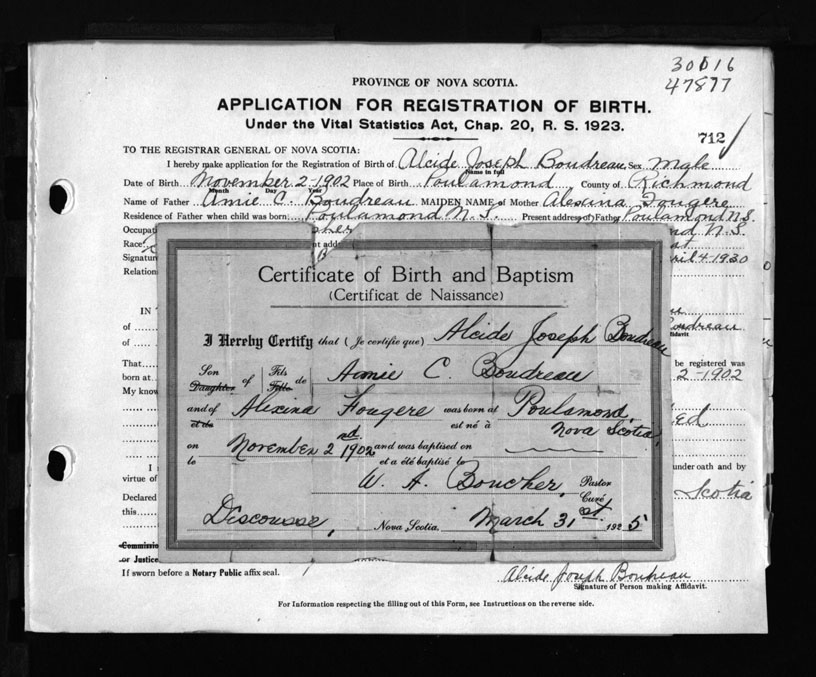 30016
47877
PROVINCE OF NOVA SCOTIA.
APPLICATION FOR REGISTRATION OF BIRTH.
Under the Vital Statistics Act, Chap. 20, R. S. 1923.
712
TO THE REGISTRAR GENERAL OF NOVA SCOTIA:
I hereby make application for the Registration of Birth of Alcide Joseph Boudreau Sex Male
Name in full
Date of Birth November 2-1902 Place of Birth Poulamond County of Richmond
Month Day Year
Name of Father Amie C. Boudreau MAIDEN NAME of Mother Alexina Fougere
Residence of Father when child was born: Poulamond N.S. Present address of Father Poulamond N.S.
Occupat
Race
Signatu ril 4-1930
Relation
Certificate of Birth and Baptism
(Certificat de Naissance)
IN
of oudreau
of fidavit
I Hereby Certify that (Je certifie que) Alcide Joseph Boudreau
That be registered was
Son Daughter of Fils Fille de Amie C. Boudreau
born at 2-1902
My know
and of et de Alexina Fougere was born at est né à Poulamond, Nova Scotia,
on le November 2nd 1902 and was baptised on et a été baptisé le
I under oath and by
virtue of
W. A. Boucher, Pastor Curé
Declared Scotia
this
Descousse, Nova Scotia, March 31st 1925
Commissio
or Justice
If sworn before a Notary Public affix seal.
Alcide Joseph Boudreau
Signature of Person making Affidavit.
For Information respecting the filling out of this Form, see Instructions on the reverse side.